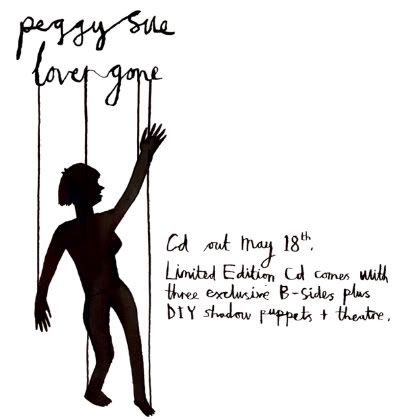 peggy sue
lover gone
Cd out May 18th.
Limited Edition Cd comes with
three exclusive B-Sides plus
DIY shadow puppets + theatre.